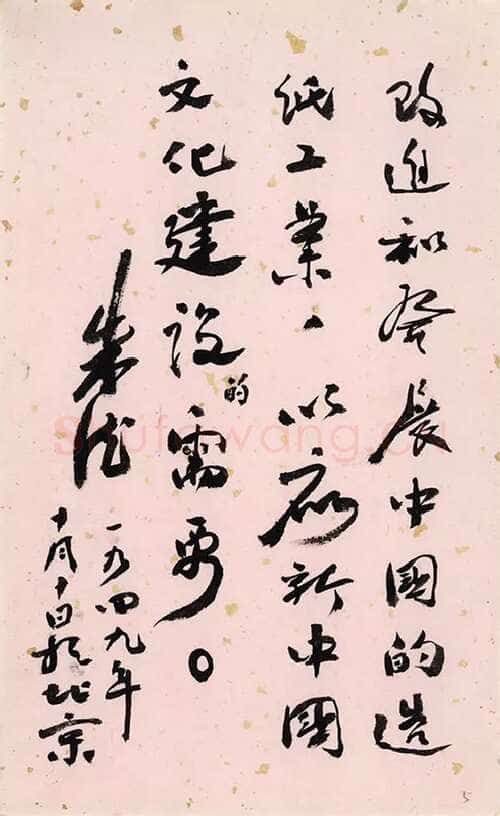 改进和发展中国的造
纸工业、以应新中国
文化建设的需要。
朱德
一九四九年
十月十日於北京
5